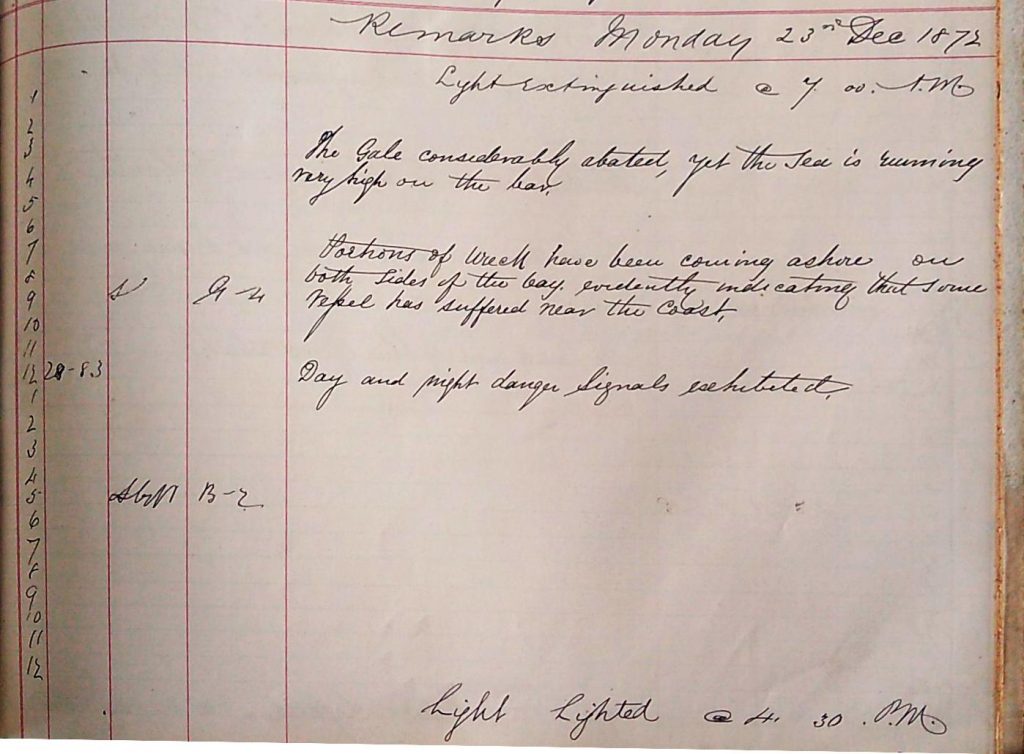 Remarks Monday 23rd Dec 1872
Light Extinguished @ 7 00. A.M.
1
2
3
The Gale considerably abated, yet the Sea is running
very high on the bar.
4
5
6
7
Portions of wreck have been coming ashore on
8
both sides of the bay. evidently indicating that some
9 S G-4
vessel has suffered near the Coast.
10
11
12 28-83
Day and night danger signals exhibited.
1
2
3
4
5 SbyW B-2
6
7
8
9
10
11
12
Light Lighted @ 4. 30. P.M.